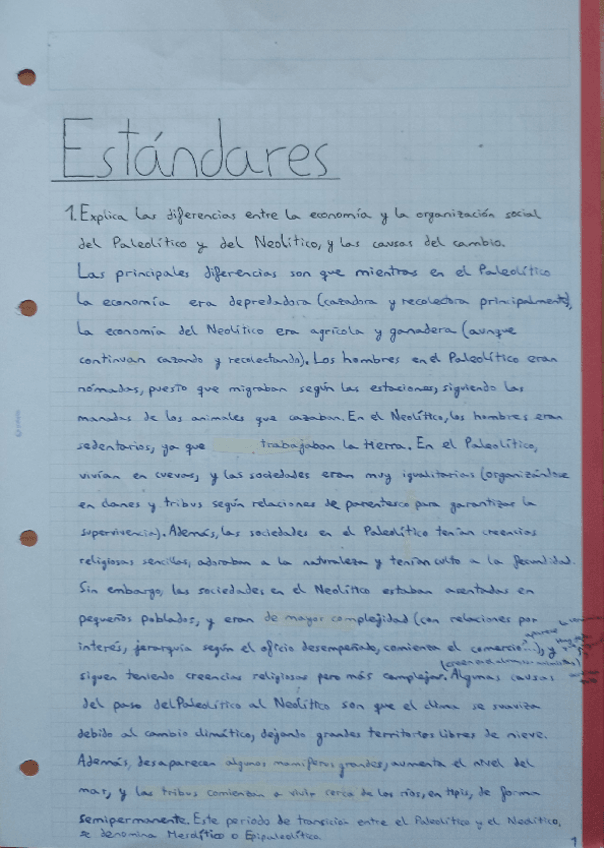 Estándares
1. Explica las diferencias entre la economía y la organización social
del Paleolítico y del Neolítico, y las causas del cambio.
Las principales diferencias son que mientras en el Paleolítico
la economía era depredadora (cazadora y recolectora principalmente),
la economía del Neolítico era agrícola y ganadera (aunque
continuan cazando y recolectando). Los hombres en el Paleolítico eran
nómadas, puesto que migraban según las estaciones, siguiendo las
manadas de los animales que cazaban. En el Neolítico, los hombres eran
sedentarios, ya que trabajaban la tierra. En el Paleolítico,
vivían en cuevas, y las sociedades eran muy igualitarias (organizándose
en clanes y tribus según relaciones de parentesco para garantizar la
supervivencia). Además, las sociedades en el Paleolítico tenían creencias
religiosas sencillas, adoraban a la naturaleza y tenían culto a la fecundidad.
Sin embargo, las sociedades en el Neolítico estaban asentadas en
pequeños poblados, y eran de mayor complejidad (con relaciones por
interés, jerarquía según el oficio desempeñado, comienza el comercio...), y
siguen teniendo creencias religiosas pero más complejas. Algunas causas
del paso del Paleolítico al Neolítico son que el clima se suaviza
debido al cambio climático, dejando grandes territorios libres de nieve.
Además, desaparecen algunos mamíferos grandes, aumenta el nivel del
mar, y las tribus comienzan a vivir cerca de los ríos, en tipis, de forma
semipermanente. Este periodo de transición entre el Paleolítico y el Neolítico,
se denomina Mesolítico o Epipaleolítico.
1